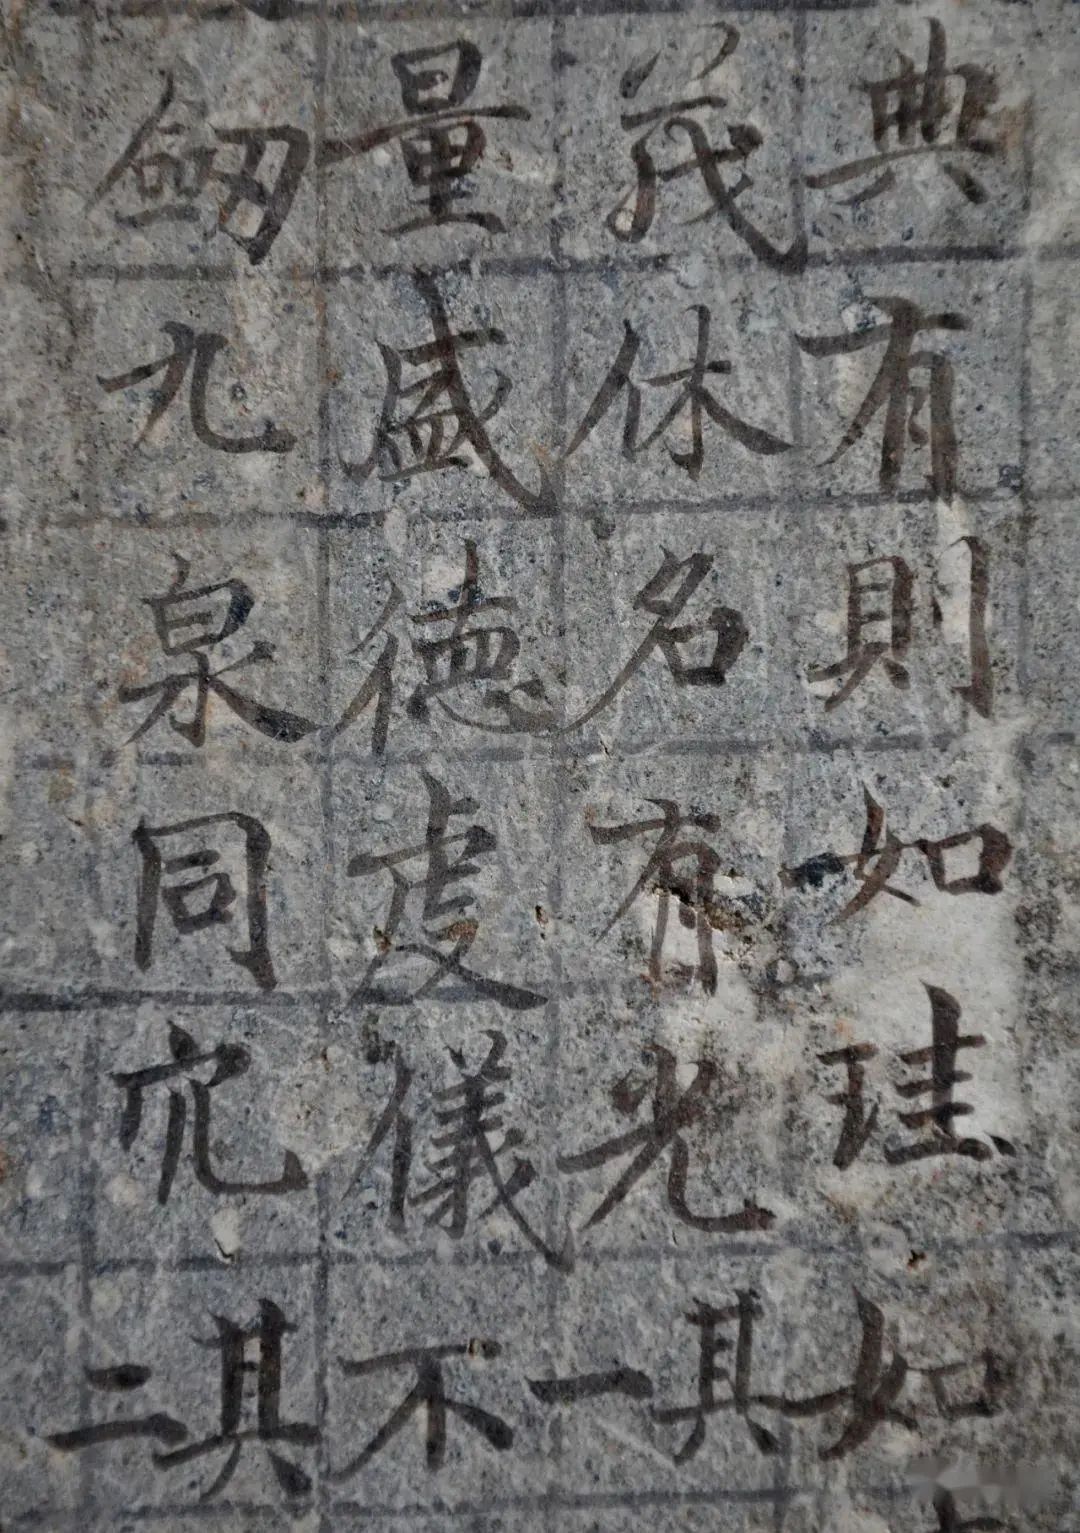 典有則如珪如
茂休名有光其一
量盛德虔儀不
劒九泉同穴其二